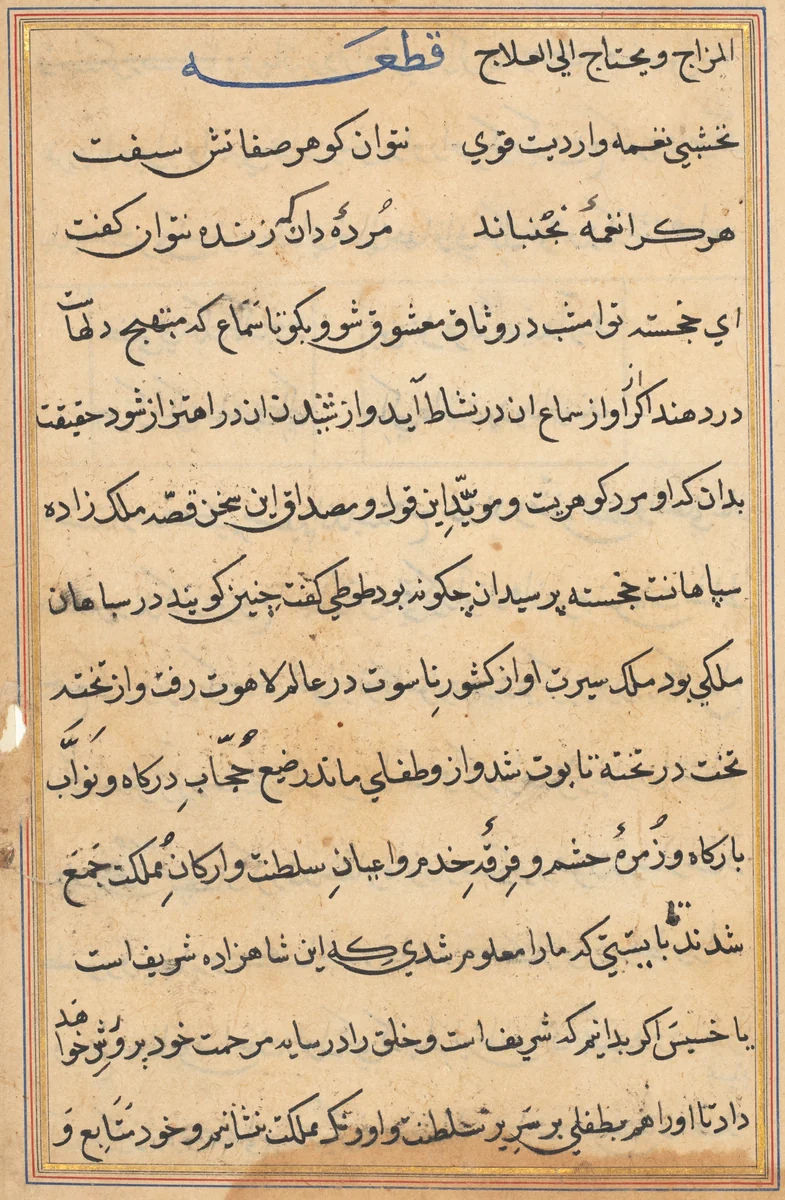 المزاج ويحتاج الي العلاج قطعه
نخشبي نغمه واردیت قوي نتوان كوهر صفاتش سفت
هركرا نغمهٔ نجنباند مُردهٔ دان كه زنده نتوان كفت
اي خجسته تو امشب در وثاق معشوق شو و بكو تا سماع كه مبتهج دلهاست
در دهند اكر از آواز سماع ان در نشاط آيد و از شنيدن ان در اهتزاز شود حقيقت
بدان كه او مرد كوهريست و مويّدِ اين قول و مصداق اين سخن قصّه ملك زاده
سپاهانست خجسته پرسيد ان چكونه بود طوطي كفت چنين كويند در سپاهان
ملكي بود ملك سيرت او از كشور ناسوت در عالم لاهوت رفت و از تخته
تخت در تخته تابوت شد و از و طفلي ماند رضيع حُجّابِ دركاه و نَوّاب
باركاه و زُمرهٔ حشم و فِرقهٔ خدم و اعيانِ سلطنت و اركانِ مملكت جمع
شدند بايستي كه مارا معلوم شدي كه اين شاهزاده شريف است
يا خسيس اكر بدانيم كه شريف است و خلق را در سايه مرحمت خود پرورش خواهد
داد تا او را هم بطفلي بر سرير سلطنت و اورنك مملكت بنشانيم و خود متابع و